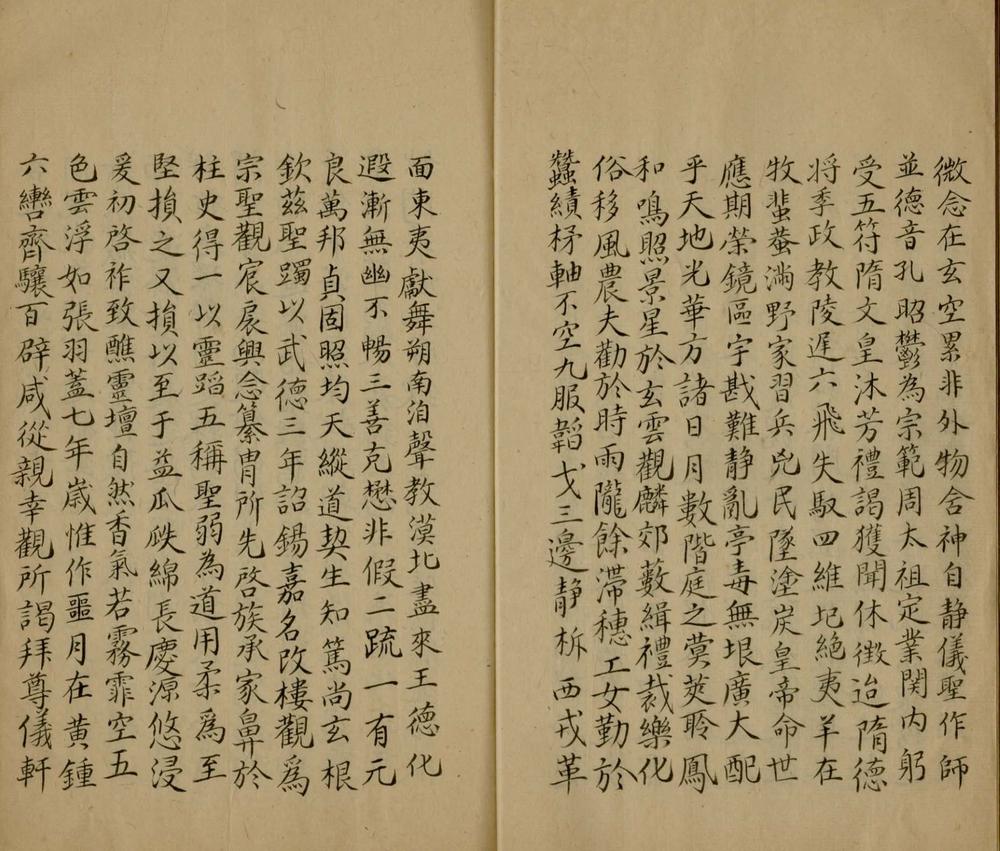 微念在玄空累非外物舍神自静儀聖作師
並德音孔昭鬱為宗範周太祖定業関内躬
受五符隋文皇沐芳禮謁獲聞休徴迨隋德
将季政教陵遅六飛失馭四維圮絶夷羊在
牧蜚蠜滿野家習兵兇民墜塗炭皇帝命世
應期榮鏡區宇戡難静亂亭毒無垠廣大配
乎天地光華方諸日月數階庭之蓂莢聆鳳
和鳴照景星於玄雲觀麟郊藪緝禮裁樂化
俗移風農夫勸於時雨隴餘滯穗工女勤於
蠶績杼軸不空九服韜戈三邊静柝西戎革
面東夷獻舞朔南洎聲教漠北盡來王德化
遐漸無幽不暢三善克懋非假二疏一有元
良萬邦貞固照均天縱道契生知篤尚玄根
欽茲聖躅以武德三年詔錫嘉名改樓觀爲
宗聖觀宸扆興念纂胄所先啓族承家鼻於
柱史得一以靈蹈五稱聖弱為道用柔爲至
堅損之又損以至于益瓜瓞綿長慶源悠浸
爰初啓祚致醮靈壇自然香氣若霧霏空五
色雲浮如張羽蓋七年歲惟作噩月在黄鍾
六轡齊驤百辟咸從親幸觀所謁拜尊儀軒